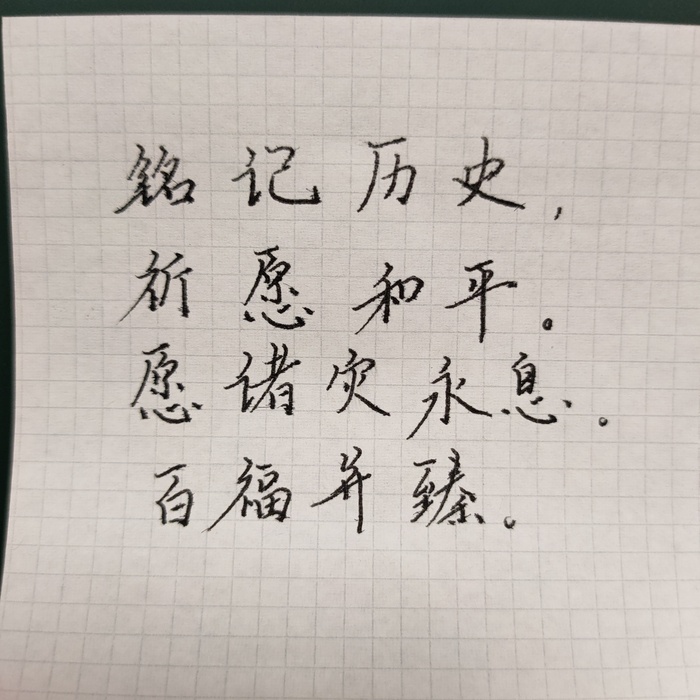 铭记历史,
祈愿和平。
愿诸灾永息。
百福并臻。